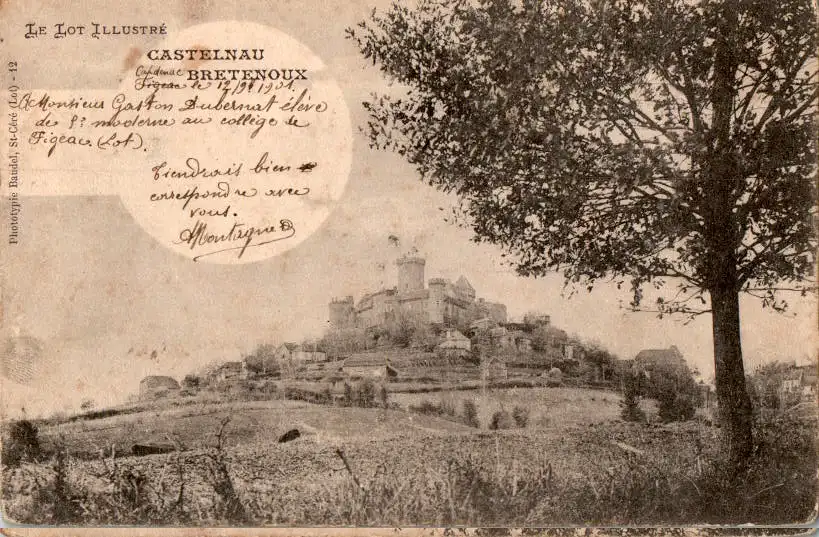 Le Lot Illustré
CASTELNAU
BRETENOUX
Capdenac
Figeac le 12/9bre 1901.
A Monsieur Gaston Dubernat élève
de 5e moderne au collège de
Figeac (Lot).
Tiendrais bien
correspondre avec
vous.
Montagne
Phototypie Baudel, St-Céré (Lot) - 12